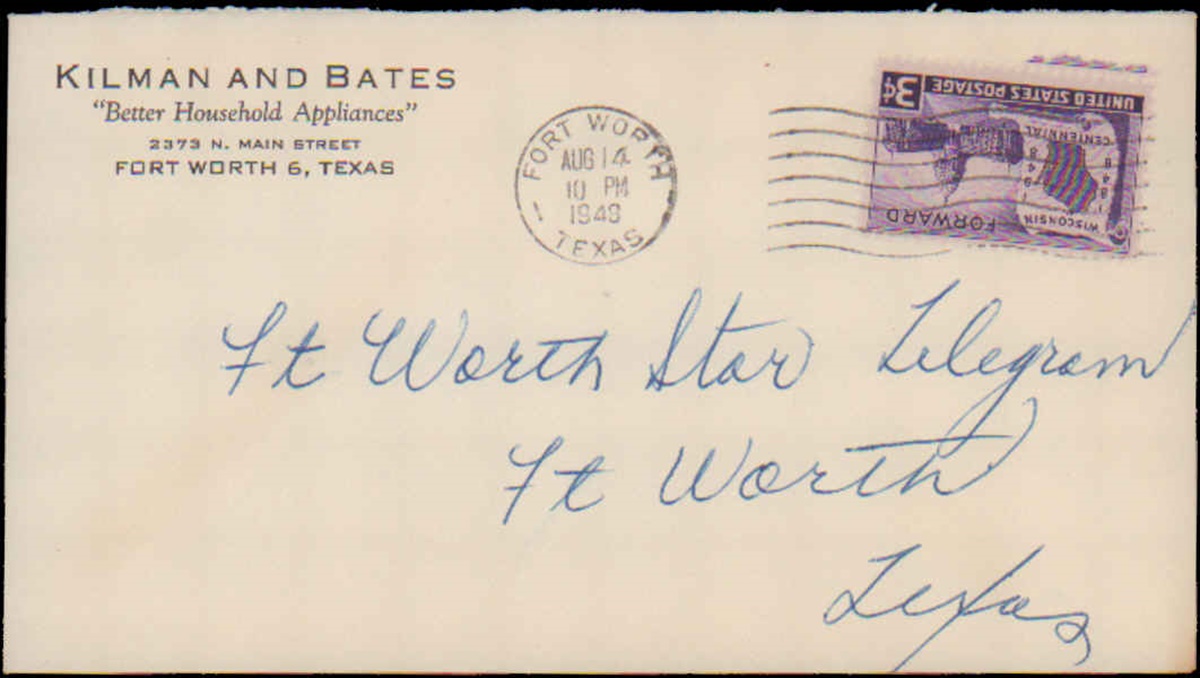 KILMAN AND BATES
"Better Household Appliances"
2373 N. MAIN STREET
FORT WORTH 6, TEXAS
FORT WORTH
AUG 14
10 PM
1948
TEXAS
UNITED STATES POSTAGE
3¢
CENTENNIAL
1848
1948
WISCONSIN
FORWARD
Ft Worth Star Telegram
Ft Worth
Texas